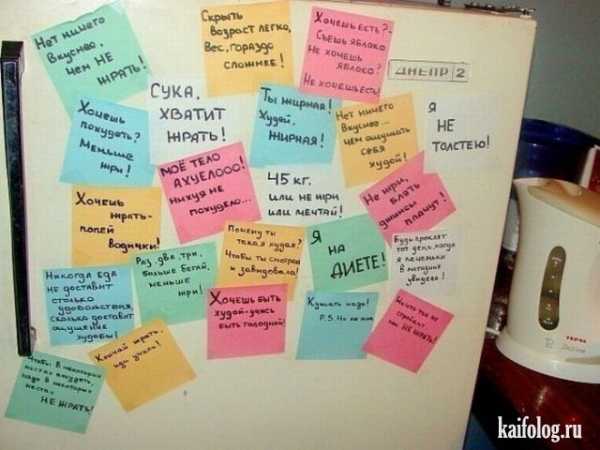 Нет ничего
вкуснее,
чем НЕ
ЖРАТЬ!
Скрыть
возраст легко,
вес, гораздо
сложнее!
Хочешь есть? -
Съешь яблоко
Не хочешь
яблоко?
Не хочешь есть!
ДНЕПР 2
СУКА,
ХВАТИТ
ЖРАТЬ!
Ты жирная!
Худей,
ЖИРНАЯ!
Нет ничего
вкуснее...
чем ощущать
себя
худой!
Я
НЕ
ТОЛСТЕЮ!
Хочешь
похудеть?
Меньше
жри!
МОЁ ТЕЛО
АХУЕЛООО!
нихуя не
похудело...
45 кг.
ИЛИ НЕ ЖРИ
ИЛИ МЕЧТАЙ!
Не жри,
блять
джинсы
плачут!
Хочешь
жрать-
попей
водички!
Почему ты
такая худая?
Чтобы ты смотрела
и завидовала!
Я
НА
ДИЕТЕ!
Будь проклят
тот день, когда
я печеньки
в магазине
увидела!
Никогда еда
не доставит
столько
удовольствия,
сколько доставит
ощущение
худобы!
Раз, два, три,
больше бегай,
меньше
жри!
Хочешь быть
худой - ужсь
быть голодной!
Кушать надо!
P.S. Но не
НЕ ЖРАТЬ!
Кончай жрать.
иди учись!
Чтобы в некоторых
местах похудеть,
надо в некоторых
местах
НЕ ЖРАТЬ!
TEFAL
kaifolog.ru